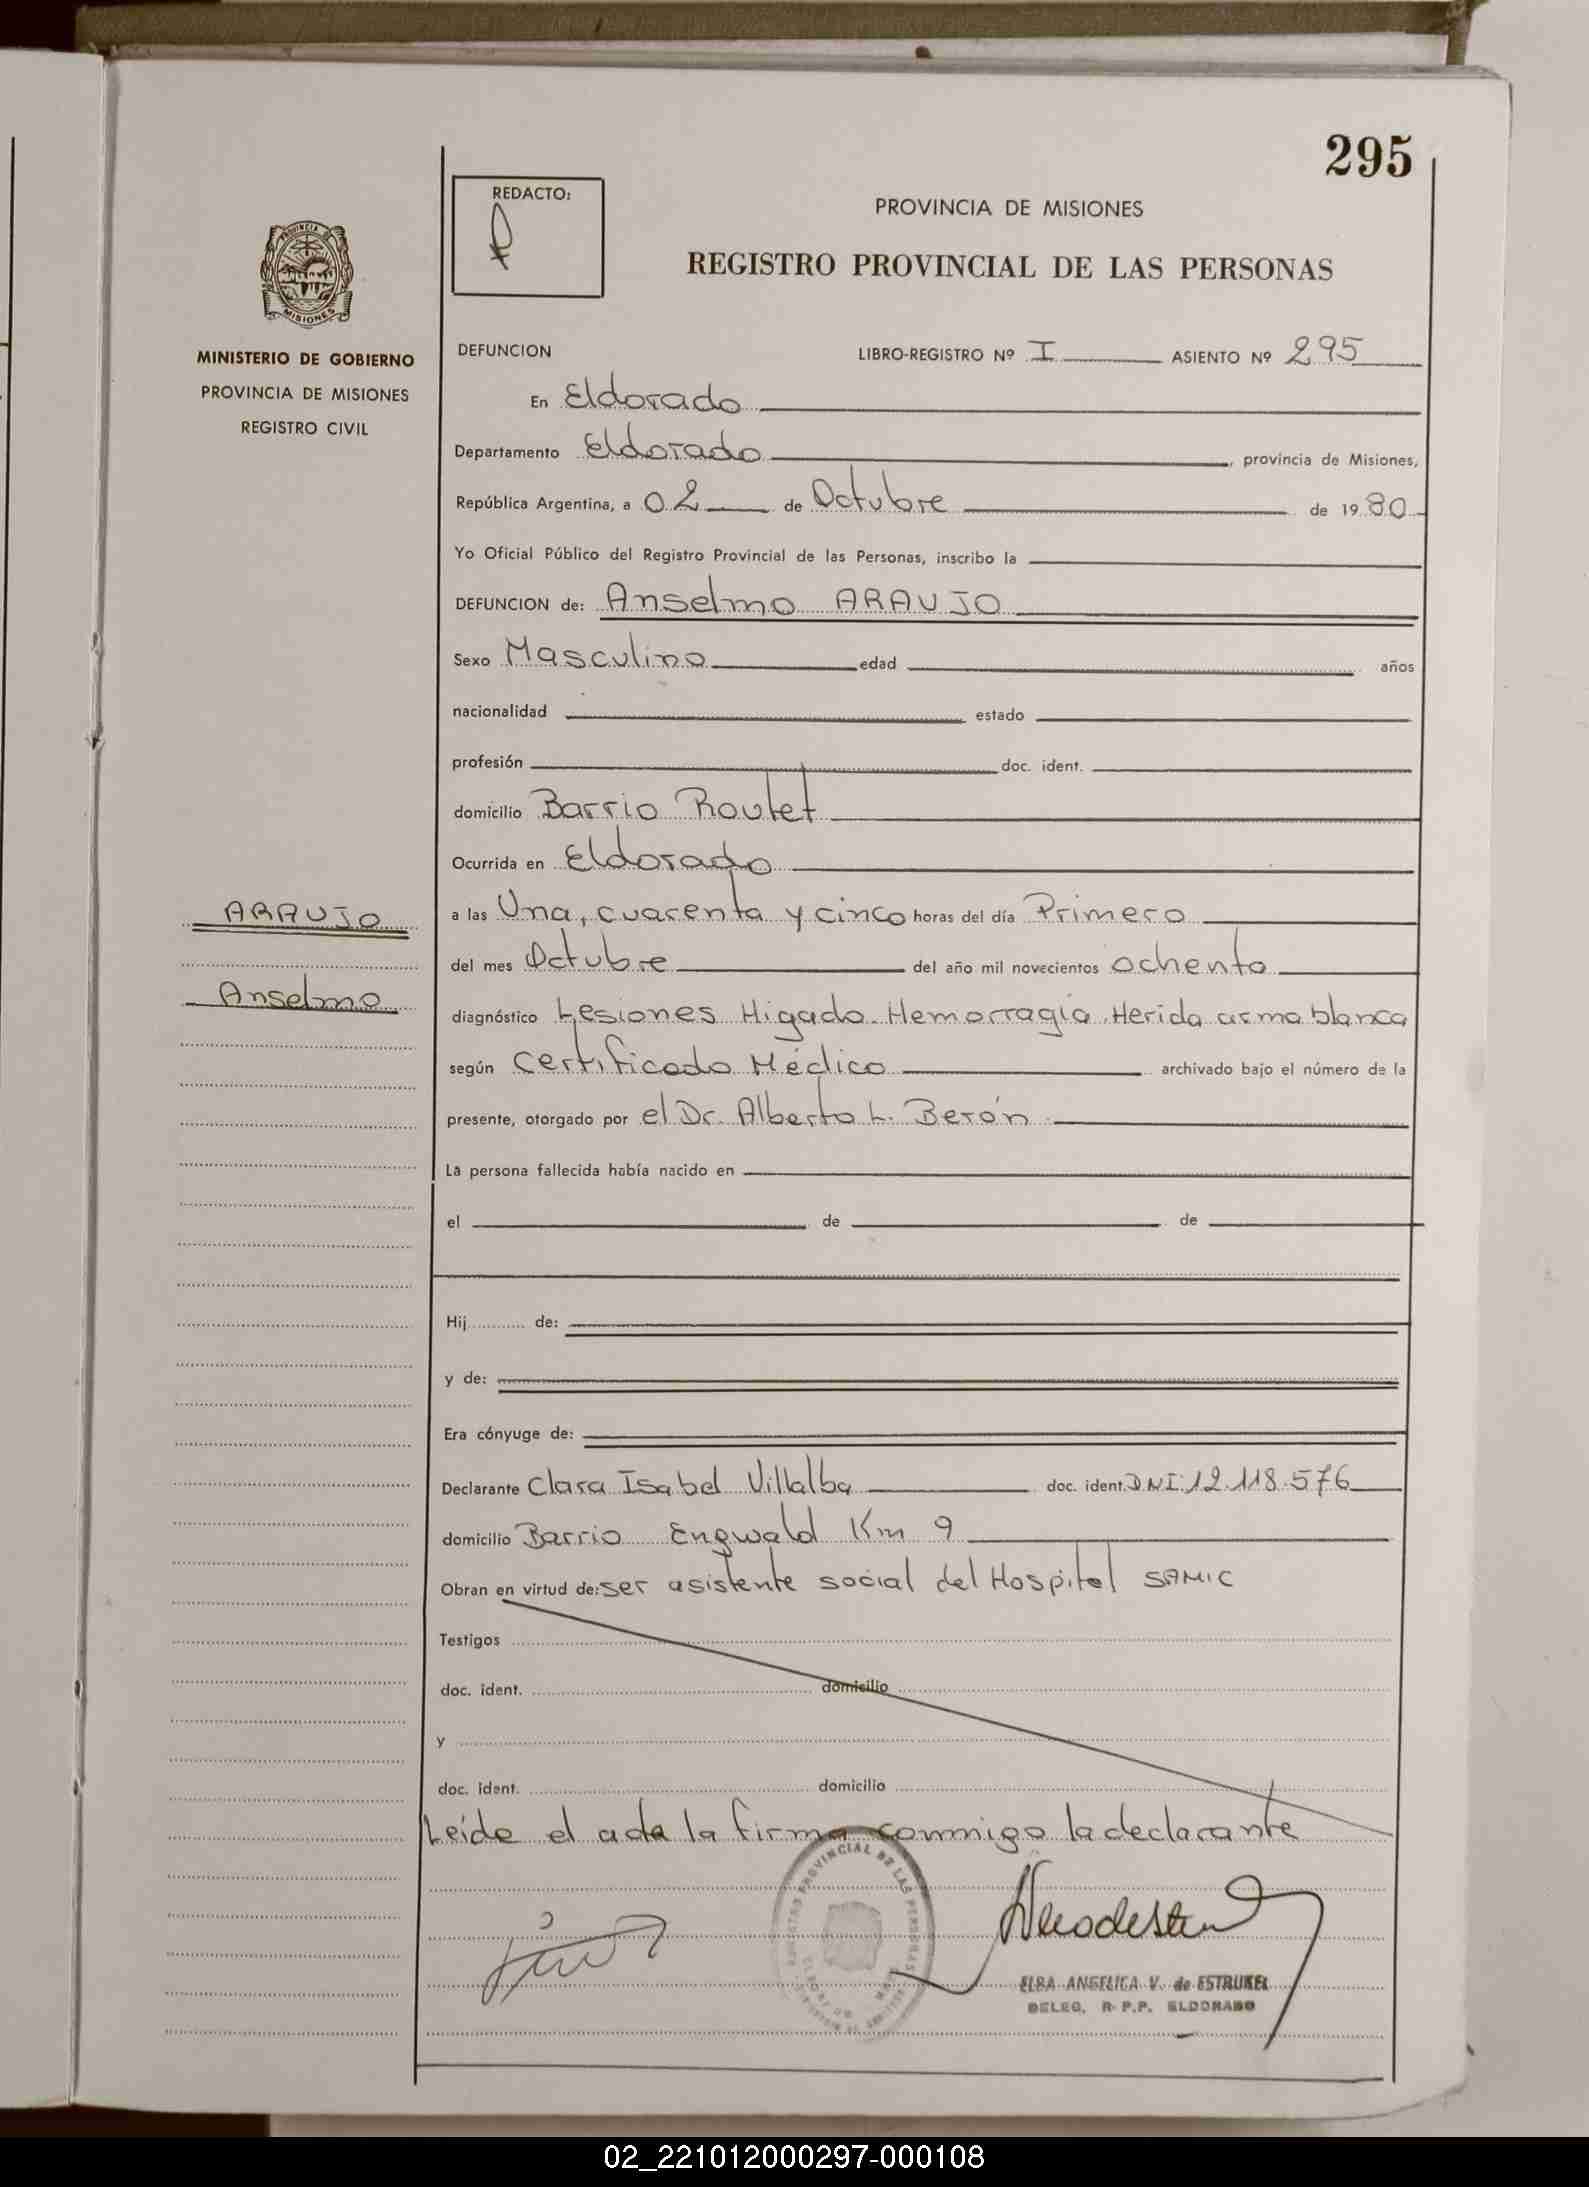 295
REDACTO:
PROVINCIA DE MISIONES
REGISTRO PROVINCIAL DE LAS PERSONAS
PROVINCIA DE
MISIONES
MINISTERIO DE GOBIERNO
PROVINCIA DE MISIONES
REGISTRO CIVIL
DEFUNCION LIBRO-REGISTRO Nº I ASIENTO Nº 295
En Eldorado
Departamento Eldorado, provincia de Misiones,
República Argentina, a 02 de Octubre de 19 80
Yo Oficial Público del Registro Provincial de las Personas, inscribo la
DEFUNCION de: Anselmo ARAUJO
Sexo Masculino edad años
nacionalidad estado
profesión doc. ident.
domicilio Barrio Routet
Ocurrida en Eldorado
ARAUJO
Anselmo
a las Una, cuarenta y cinco horas del día Primero
del mes Octubre del año mil novecientos ochenta
diagnóstico Lesiones Higado. Hemorragia. Herida arma blanca
según Certificado Médico archivado bajo el número de la
presente, otorgado por el Dr. Alberto L. Berón
La persona fallecida había nacido en
el de de
Hij de:
y de:
Era cónyuge de:
Declarante Clara Isabel Villalba doc. ident. DNI:12.118.576
domicilio Barrio Engwald Km 9
Obran en virtud de: ser asistente social del Hospital SAMIC
Testigos
doc. ident. domicilio
y
doc. ident. domicilio
Leíde el acta la firma conmigo la declarante
REGISTRO PROVINCIAL DE LAS PERSONAS
ELBA ANGELICA V. de ESTRUKEL
DELEG. R.P.P. ELDORADO
02_221012000297-000108